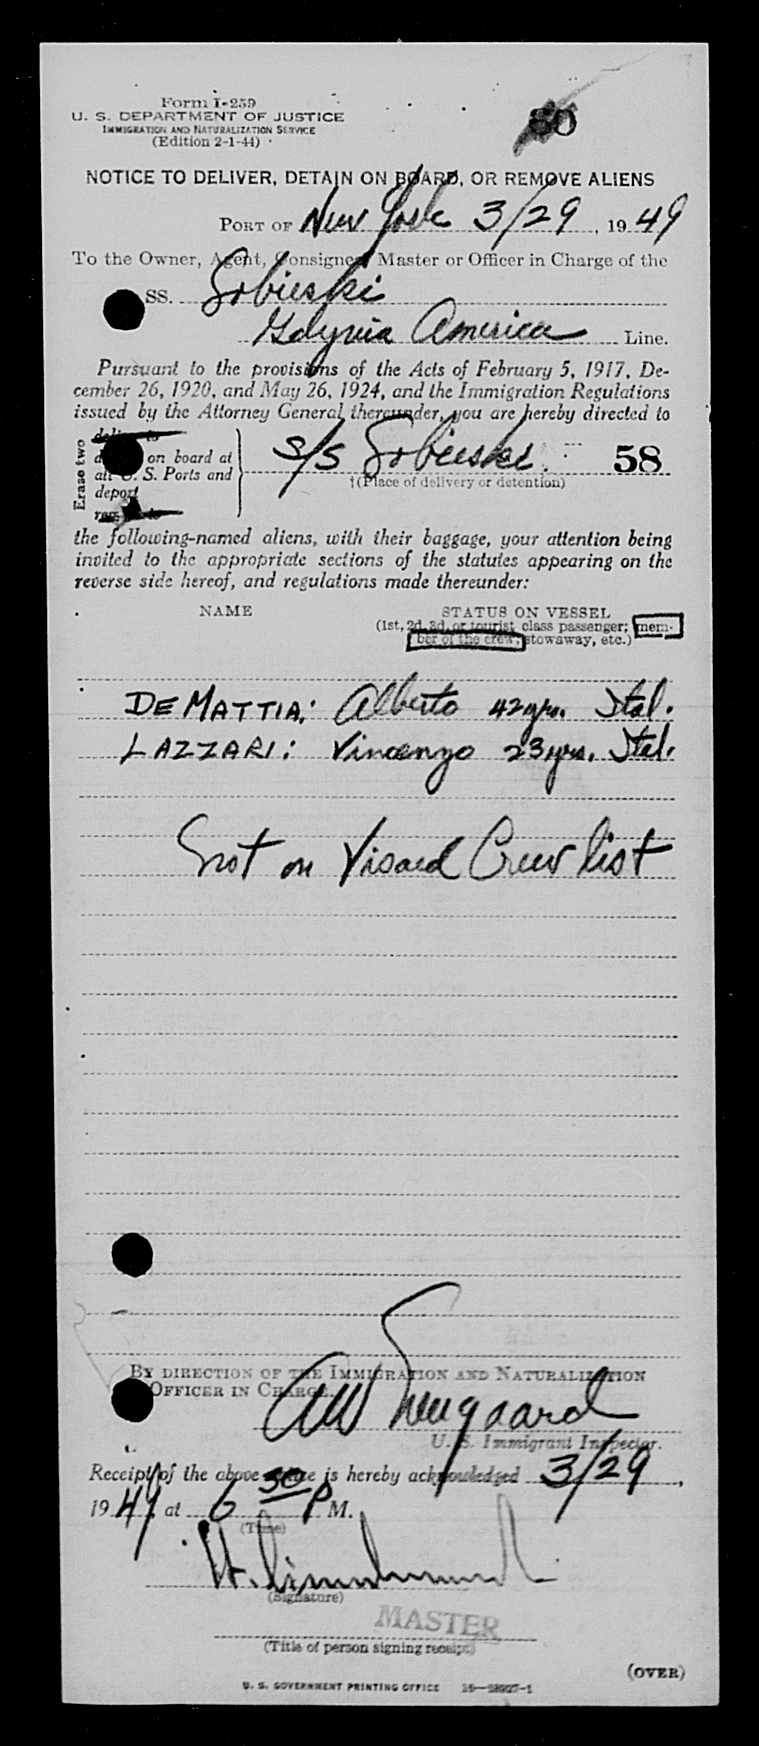 Form I-259
U. S. DEPARTMENT OF JUSTICE
IMMIGRATION AND NATURALIZATION SERVICE
(Edition 2-1-44)
80
NOTICE TO DELIVER, DETAIN ON BOARD, OR REMOVE ALIENS
PORT OF New York 3/29, 1949
To the Owner, Agent, Consignee, Master or Officer in Charge of the
SS. Sobieski
Gdynia America Line.
Pursuant to the provisions of the Acts of February 5, 1917, De-
cember 26, 1920, and May 26, 1924, and the Immigration Regulations
issued by the Attorney General thereunder, you are hereby directed to
Erase two
deliver to
on board at
all U. S. Ports and
deport
S/S Sobieski. 58
†(Place of delivery or detention)
the following-named aliens, with their baggage, your attention being
invited to the appropriate sections of the statutes appearing on the
reverse side hereof, and regulations made thereunder:
NAME STATUS ON VESSEL
(1st, 2d, 3d, or tourist class passenger; mem-
ber of the crew; stowaway, etc.)
DE MATTIA: Alberto 42yrs. Ital.
LAZZARI: Vincenzo 23yrs. Ital.
not on Visaed Crew list
BY DIRECTION OF THE IMMIGRATION AND NATURALIZATION
OFFICER IN CHARGE.
U. S. Immigrant Inspector.
Receipt of the above notice is hereby acknowledged 3/29,
1949, at 6 30 P M.
(Time)
(Signature)
MASTER
(Title of person signing receipt)
(OVER)
U. S. GOVERNMENT PRINTING OFFICE